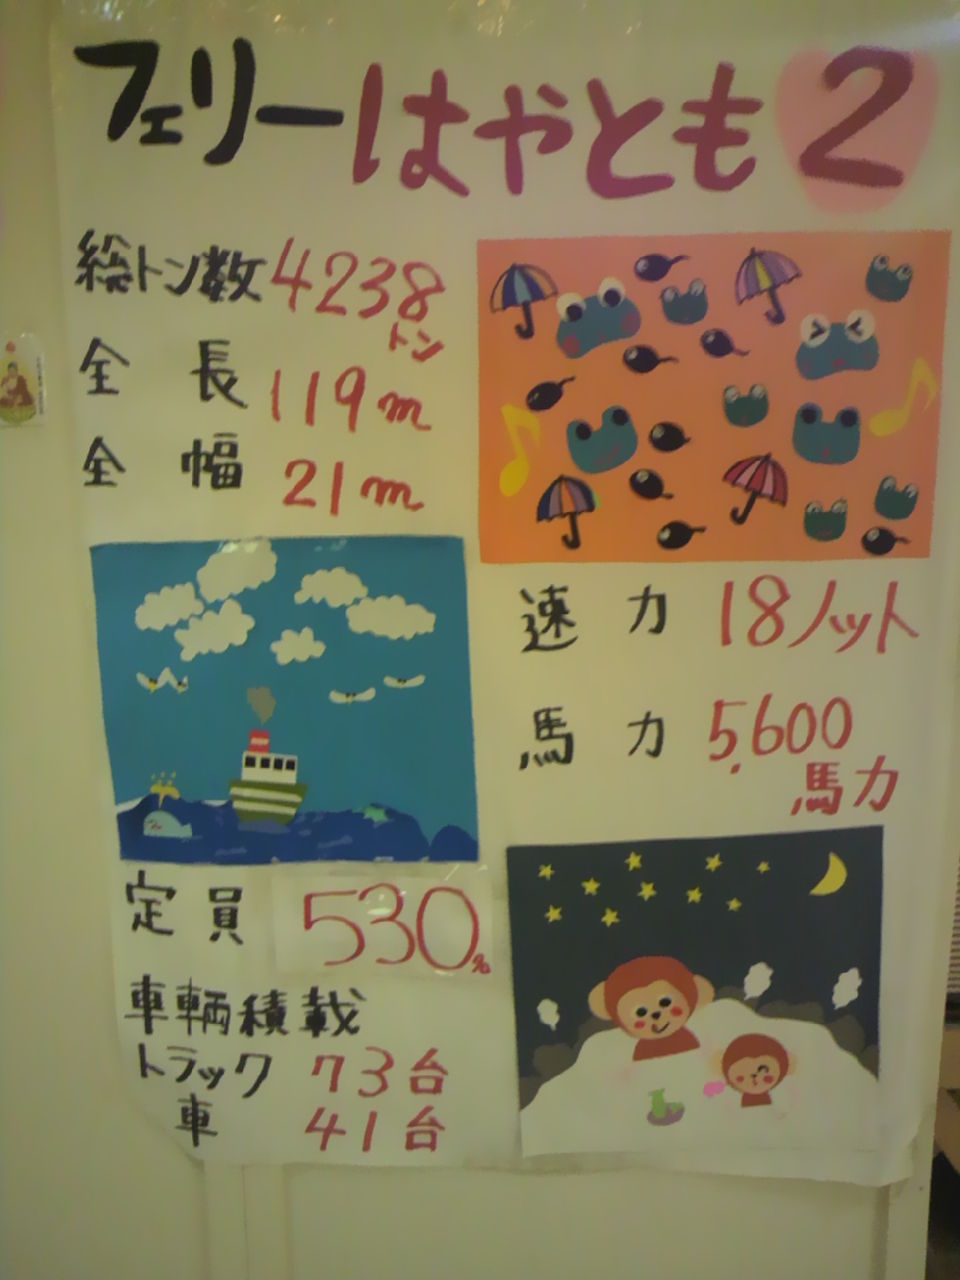 フェリーはやとも2
総トン数 4238トン
全長 119m
全幅 21m
速力 18ノット
馬力 5,600馬力
定員 530名
車輌積載
トラック 73台
車 41台